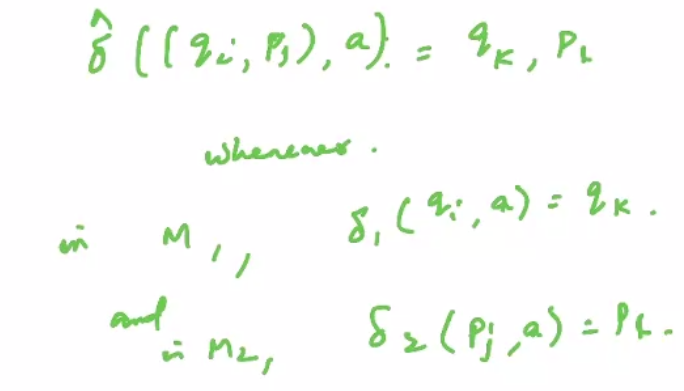 δ̂ ((qᵢ, pⱼ), a) = q_K, p_L
whenever.
in M₁, δ₁ (qᵢ, a) = q_K.
and
in M₂, δ₂ (pⱼ, a) = p_L.